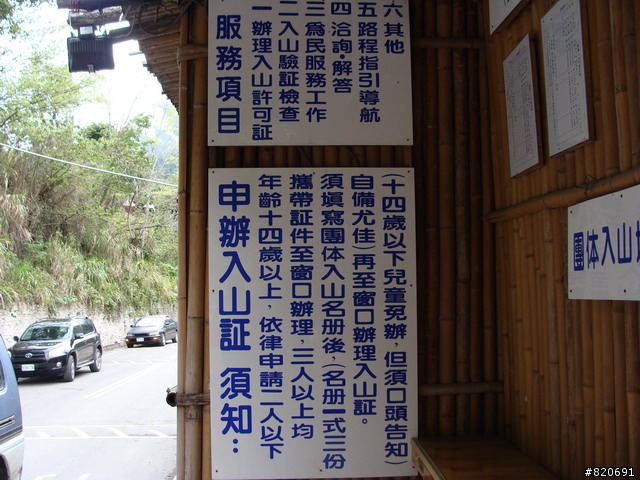 服務項目
一辦理入山許可証
二入山驗証檢查
三爲民服務工作
四洽詢·解答
五路程指引導航
六其他
申辦入山証 須知：
年齡十四歲以上，依律申請二人以下
攜帶証件至窗口辦理，三人以上均
須塡寫團体入山名册後，(名册一式三份
自備尤佳)再至窗口辦理入山証。
(十四歲以下兒童免辦，但須口頭告知)
團体入山
#820691